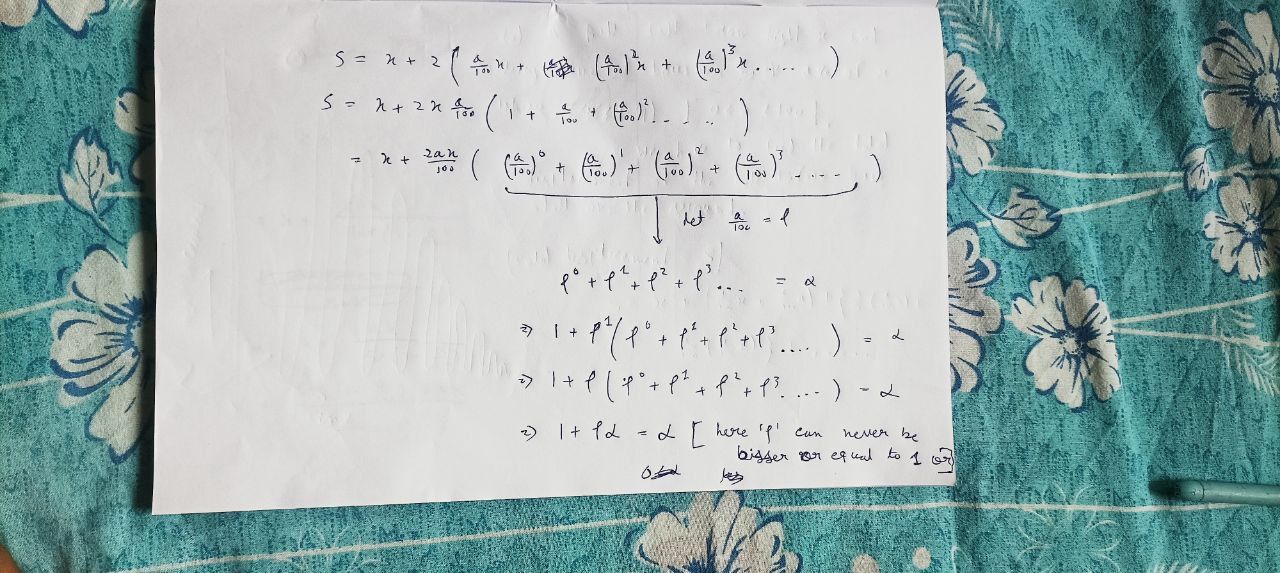 S = x + 2 ( a/100 x + (a/100)²x + (a/100)³x ..... )
S = x + 2x a/100 ( 1 + a/100 + (a/100)² ..... )
= x + 2ax/100 ( (a/100)⁰ + (a/100)¹ + (a/100)² + (a/100)³ ..... )
let a/100 = f
f⁰ + f¹ + f² + f³ ... = α
⇒ 1 + f¹ ( f⁰ + f¹ + f² + f³ .... ) = α
⇒ 1 + f ( f⁰ + f¹ + f² + f³ .... ) = α
⇒ 1 + fα = α [ here 'f' can never be
bigger or equal to 1 or]